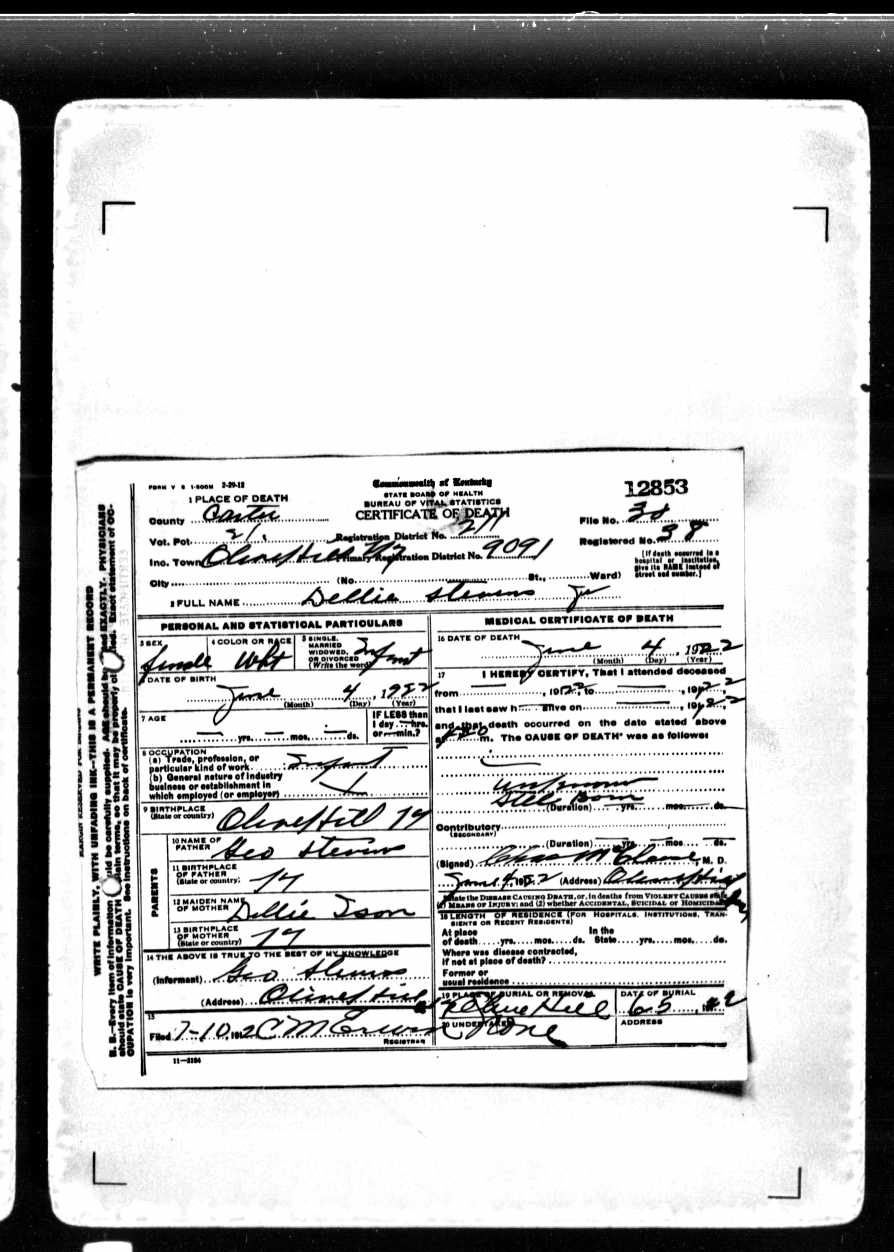 FORM V S 1-500M 2-29-12
Commonwealth of Kentucky
STATE BOARD OF HEALTH
BUREAU OF VITAL STATISTICS
CERTIFICATE OF DEATH
12853
1 PLACE OF DEATH
County Carter
File No. 30
Vot. Pct. 21
Registration District No. 211
Registered No. 38
Inc. Town Olive Hill Ky Primary Registration District No. 9091
[If death occurred in a hospital or institution, give its NAME instead of street and number.]
City (No. St., Ward)
2 FULL NAME Dellie Stevens Jr
PERSONAL AND STATISTICAL PARTICULARS
3 SEX Female
4 COLOR OR RACE Wht
5 SINGLE, MARRIED WIDOWED, OR DIVORCED (Write the word) Infant
6 DATE OF BIRTH
June 4, 1922
(Month) (Day) (Year)
7 AGE
yrs. mos. ds.
IF LESS than 1 day hrs. or min.?
8 OCCUPATION
(a) Trade, profession, or particular kind of work Infant
(b) General nature of industry business or establishment in which employed (or employer)
9 BIRTHPLACE
(State or country) Olive Hill Ky
PARENTS
10 NAME OF FATHER Geo Stevens
11 BIRTHPLACE OF FATHER (State or country) Ky
12 MAIDEN NAME OF MOTHER Dellie Ison
13 BIRTHPLACE OF MOTHER (State or country) Ky
14 THE ABOVE IS TRUE TO THE BEST OF MY KNOWLEDGE
(Informant) Geo Stevens
(Address) Olive Hill
15
Filed 7-10, 192 C M
REGISTRAR
11-3184
MEDICAL CERTIFICATE OF DEATH
16 DATE OF DEATH
June 4, 1922
(Month) (Day) (Year)
17 I HEREBY CERTIFY, That I attended deceased
from , 1922, to , 1922,
that I last saw h alive on , 1922,
and that death occurred on the date stated above
at m. The CAUSE OF DEATH* was as follows:
unknown
Still Born
(Duration) yrs. mos. ds.
Contributory
(SECONDARY)
(Duration) yrs. mos. ds.
(Signed) Chas M , M. D.
June 4, 1922 (Address) Olive Hill Ky
*State the DISEASE CAUSING DEATH, or, in deaths from VIOLENT CAUSES state (1) MEANS OF INJURY; and (2) whether ACCIDENTAL, SUICIDAL or HOMICIDAL
18 LENGTH OF RESIDENCE (FOR HOSPITALS, INSTITUTIONS, TRANSIENTS OR RECENT RESIDENTS)
At place of death yrs. mos. ds. In the State yrs. mos. ds.
Where was disease contracted, if not at place of death?
Former or usual residence
19 PLACE OF BURIAL OR REMOVAL Olive Hill
DATE OF BURIAL 6 5, 1922
20 UNDERTAKER None
ADDRESS
MARGIN RESERVED FOR BINDING
WRITE PLAINLY, WITH UNFADING INK—THIS IS A PERMANENT RECORD
N. B.—Every item of information should be carefully supplied. AGE should be stated EXACTLY. PHYSICIANS
should state CAUSE OF DEATH in plain terms, so that it may be properly classified. Exact statement of OC-
CUPATION is very important. See instructions on back of certificate.